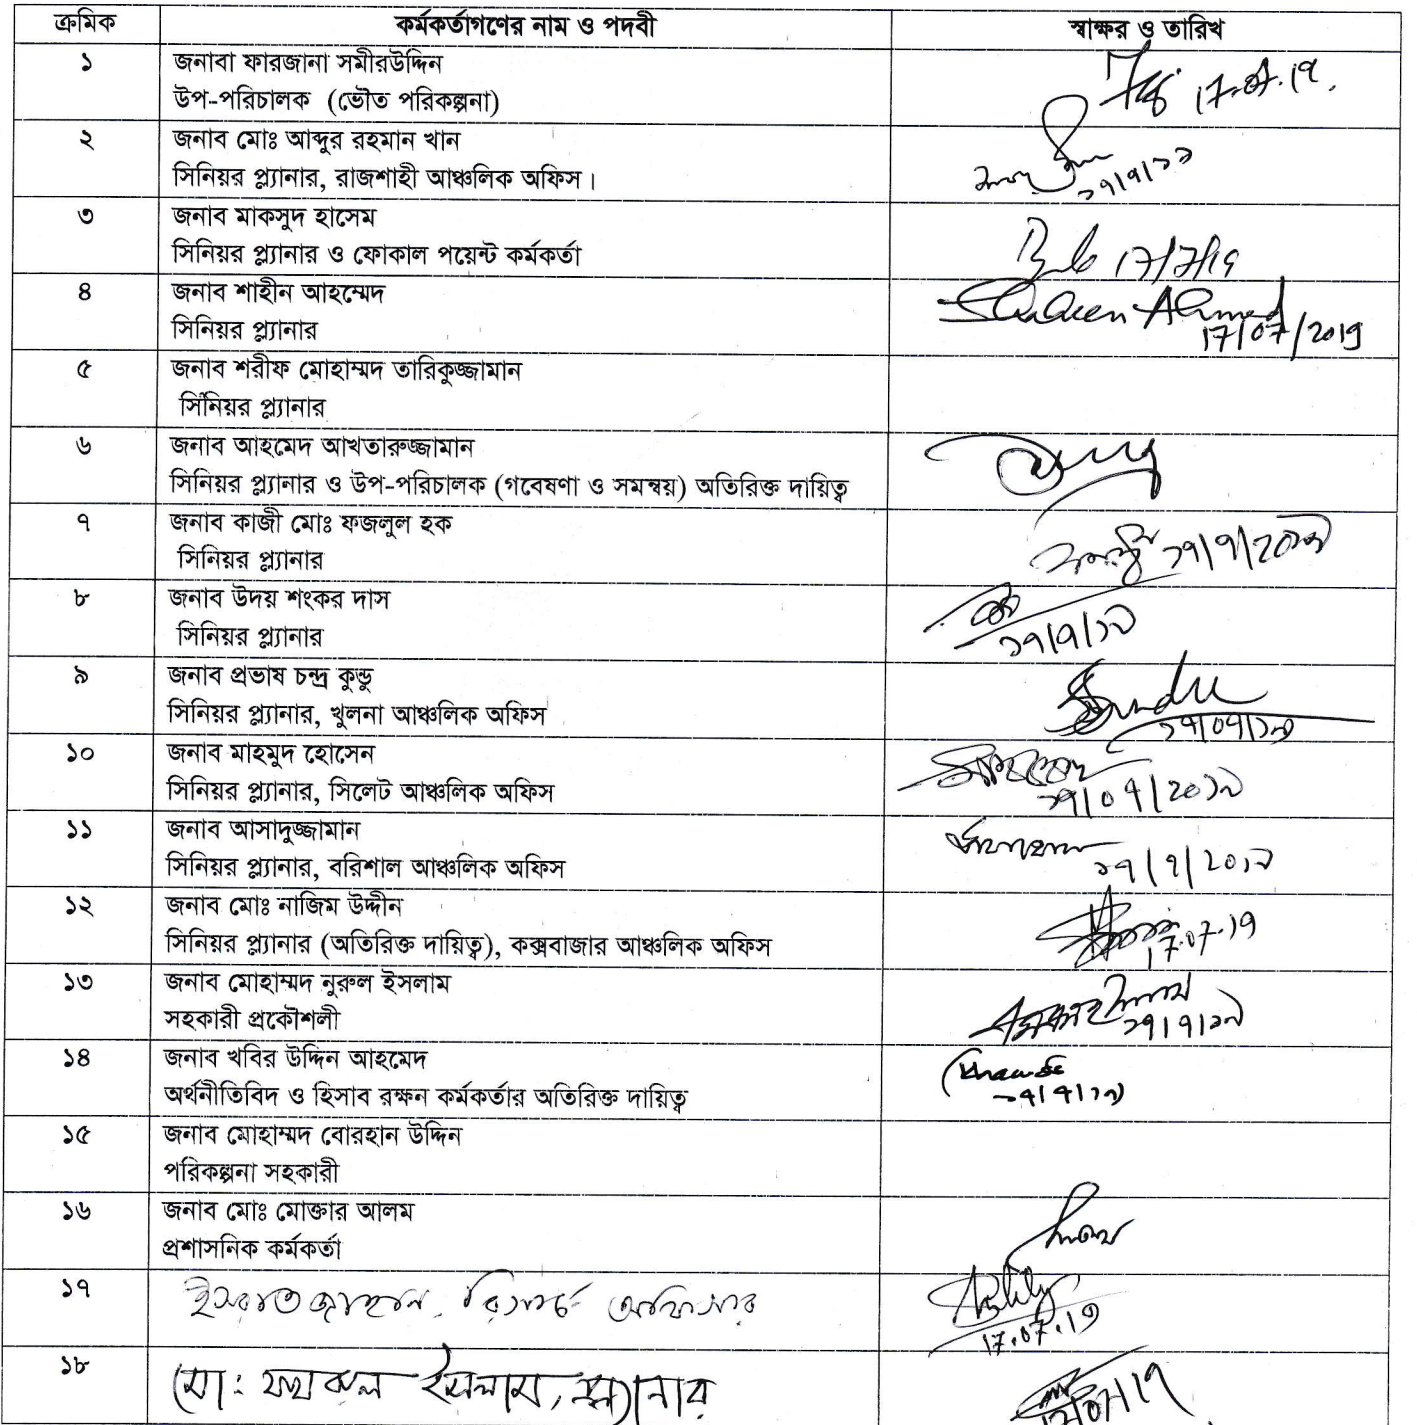 ক্রমিক কর্মকর্তাগণের নাম ও পদবী স্বাক্ষর ও তারিখ
১ জনাবা ফারজানা সমীরউদ্দিন
উপ-পরিচালক (ভৌত পরিকল্পনা) 17.07.19.
২ জনাব মোঃ আব্দুর রহমান খান
সিনিয়র প্ল্যানার, রাজশাহী আঞ্চলিক অফিস। ১৭/৭/১৯
৩ জনাব মাকসুদ হাসেম
সিনিয়র প্ল্যানার ও ফোকাল পয়েন্ট কর্মকর্তা 17/7/19
৪ জনাব শাহীন আহম্মেদ Shaheen Ahmed
সিনিয়র প্ল্যানার 17/07/2019
৫ জনাব শরীফ মোহাম্মদ তারিকুজ্জামান
সিনিয়র প্ল্যানার
৬ জনাব আহমেদ আখতারুজ্জামান
সিনিয়র প্ল্যানার ও উপ-পরিচালক (গবেষণা ও সমন্বয়) অতিরিক্ত দায়িত্ব
৭ জনাব কাজী মোঃ ফজলুল হক
সিনিয়র প্ল্যানার ১৭/৭/২০১৯
৮ জনাব উদয় শংকর দাস
সিনিয়র প্ল্যানার ১৭/৭/১৯
৯ জনাব প্রভাষ চন্দ্র কুন্ডু
সিনিয়র প্ল্যানার, খুলনা আঞ্চলিক অফিস ১৭/০৭/১৯
১০ জনাব মাহমুদ হোসেন
সিনিয়র প্ল্যানার, সিলেট আঞ্চলিক অফিস ১৭/০৭/২০১৯
১১ জনাব আসাদুজ্জামান
সিনিয়র প্ল্যানার, বরিশাল আঞ্চলিক অফিস ১৭/৭/২০১৯
১২ জনাব মোঃ নাজিম উদ্দীন
সিনিয়র প্ল্যানার (অতিরিক্ত দায়িত্ব), কক্সবাজার আঞ্চলিক অফিস 17.07.19
১৩ জনাব মোহাম্মদ নুরুল ইসলাম
সহকারী প্রকৌশলী ১৭/৭/১৯
১৪ জনাব খবির উদ্দিন আহমেদ
অর্থনীতিবিদ ও হিসাব রক্ষন কর্মকর্তার অতিরিক্ত দায়িত্ব ১৭/৭/১৯
১৫ জনাব মোহাম্মদ বোরহান উদ্দিন
পরিকল্পনা সহকারী
১৬ জনাব মোঃ মোক্তার আলম
প্রশাসনিক কর্মকর্তা
১৭ ইসরাত জাহান, রিসার্চ অফিসার
17.07.19
১৮ মো: ইসলাম, প্ল্যানার